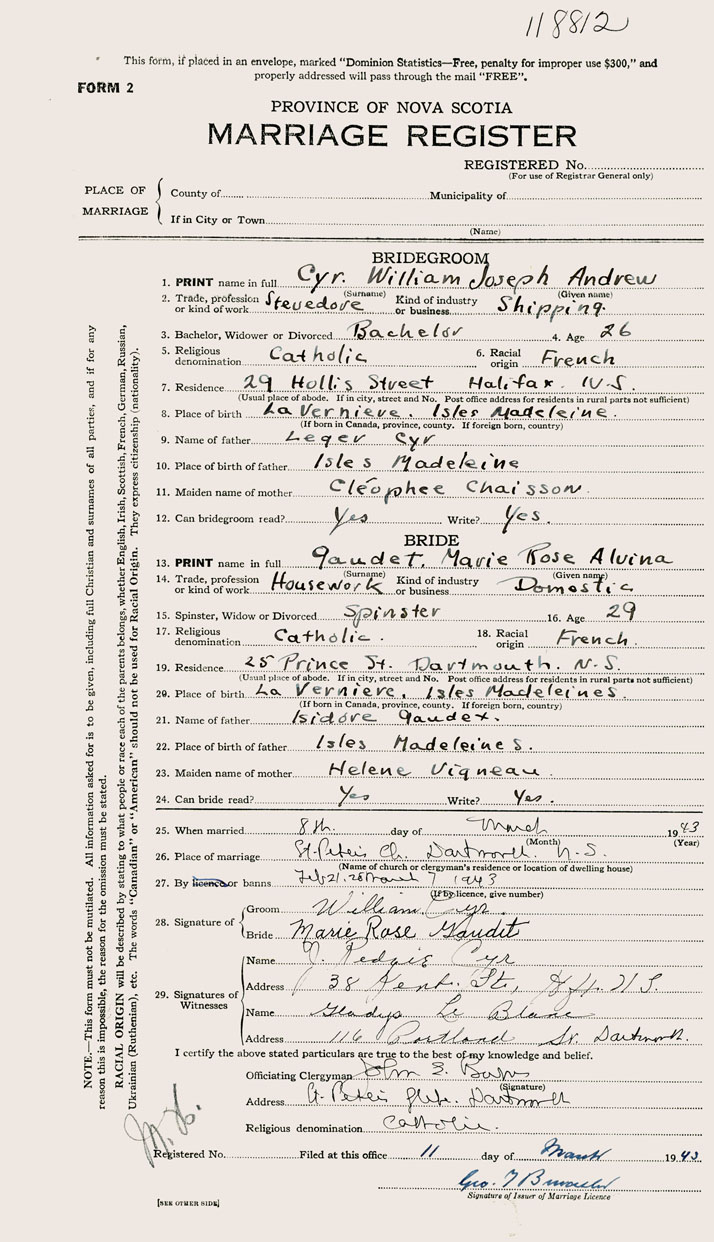 118812
This form, if placed in an envelope, marked "Dominion Statistics—Free, penalty for improper use $300," and
properly addressed will pass through the mail "FREE".
FORM 2
PROVINCE OF NOVA SCOTIA
MARRIAGE REGISTER
REGISTERED No.
(For use of Registrar General only)
PLACE OF MARRIAGE
County of Municipality of
If in City or Town
(Name)
BRIDEGROOM
1. PRINT name in full Cyr. William Joseph Andrew
(Surname) (Given name)
2. Trade, profession or kind of work Stevedore Kind of industry or business Shipping.
3. Bachelor, Widower or Divorced Bachelor 4. Age 26
5. Religious denomination Catholic 6. Racial origin French
7. Residence 29 Hollis Street Halifax. N.S.
(Usual place of abode. If in city, street and No. Post office address for residents in rural parts not sufficient)
8. Place of birth La Verniere. Isles Madeleine.
(If born in Canada, province, county. If foreign born, country)
9. Name of father Leger Cyr
10. Place of birth of father Isles Madeleine
11. Maiden name of mother Cléophee Chaisson.
12. Can bridegroom read? Yes Write? Yes.
BRIDE
13. PRINT name in full Gaudet. Marie Rose Alvina
(Surname) (Given name)
14. Trade, profession or kind of work Housework Kind of industry or business Domestic
15. Spinster, Widow or Divorced Spinster 16. Age 29
17. Religious denomination Catholic. 18. Racial origin French.
19. Residence 25 Prince St. Dartmouth. N.S.
(Usual place of abode. If in city, street and No. Post office address for residents in rural parts not sufficient)
20. Place of birth La Verniere. Isles Madeleines.
(If born in Canada, province, county. If foreign born, country)
21. Name of father Isidore Gaudet.
22. Place of birth of father Isles Madeleines.
23. Maiden name of mother Helene Vigneau.
24. Can bride read? Yes Write? Yes.
25. When married 8th. day of March 1943
(Month) (Year)
26. Place of marriage St. Peter's Ch. Dartmouth. N.S.
(Name of church or clergyman's residence or location of dwelling house)
27. By licence or banns Feb 21. 28 March 7 1943
(If by licence, give number)
28. Signature of
Groom William Cyr.
Bride Marie Rose Gaudit
29. Signatures of Witnesses
Name Cyr
Address 38 Kent. St., Hfx. N S.
Name Gladys Le Blanc
Address 116 Portland St. Dartmouth.
I certify the above stated particulars are true to the best of my knowledge and belief.
Officiating Clergyman John E. Burns
(Signature)
Address St. Peter's Glebe. Dartmouth
Religious denomination Catholic.
Registered No. Filed at this office 11 day of March 1943
Geo. T
Signature of Issuer of Marriage Licence
[SEE OTHER SIDE]
NOTE.—This form must not be mutilated. All information asked for is to be given, including full Christian and surnames of all parties, and if for any
reason this is impossible, the reason for the omission must be stated.
RACIAL ORIGIN will be described by stating to what people or race each of the parents belongs, whether English, Irish, Scottish, French, German, Russian,
Ukrainian (Ruthenian), etc. The words "Canadian" or "American" should not be used for Racial Origin. They express citizenship (nationality).